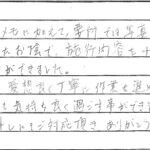 メモに加えて、要所では写真
お陰で、施行内容を十
ができました。
愛想良く丁寧に作業を進め
も気持ち良く過ごす事ができ
にもご対応頂き ありがとう